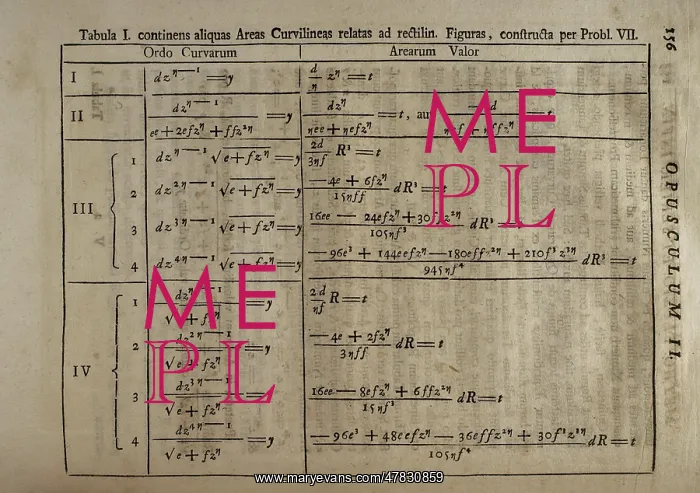 Tabula I. continens aliquas Areas Curvilineas relatas ad rectilin. Figuras, constructa per Probl. VII.
Ordo Curvarum | Arearum Valor
I | dz^{η—1} = y | d/η z^η = t
II | dz^{η—1} / (ee + 2efz^η + ffz^{2η}) = y | dz^η / (ηee + ηefz^η) = t, aut —d / (ηef + ηffz^η) = t
III
1 | dz^{η—1} √(e + fz^η) = y | 2d/3ηf R³ = t
2 | dz^{2η—1} √(e + fz^η) = y | (—4e + 6fz^η)/15ηff dR³ = t
3 | dz^{3η—1} √(e + fz^η) = y | (16ee — 24efz^η + 30ffz^{2η})/105ηf³ dR³ = t
4 | dz^{4η—1} √(e + fz^η) = y | (—96e³ + 144eefz^η — 180effz^{2η} + 210f³z^{3η})/945ηf⁴ dR³ = t
IV
1 | dz^{η—1} / √(e + fz^η) = y | 2d/ηf R = t
2 | dz^{2η—1} / √(e + fz^η) = y | (—4e + 2fz^η)/3ηff dR = t
3 | dz^{3η—1} / √(e + fz^η) = y | (16ee — 8efz^η + 6ffz^{2η})/15ηf³ dR = t
4 | dz^{4η—1} / √(e + fz^η) = y | (—96e³ + 48eefz^η — 36effz^{2η} + 30f³z^{3η})/105ηf⁴ dR = t
156
OPUSCULUM II.
ME
PL
ME
PL
www.maryevans.com/47830859